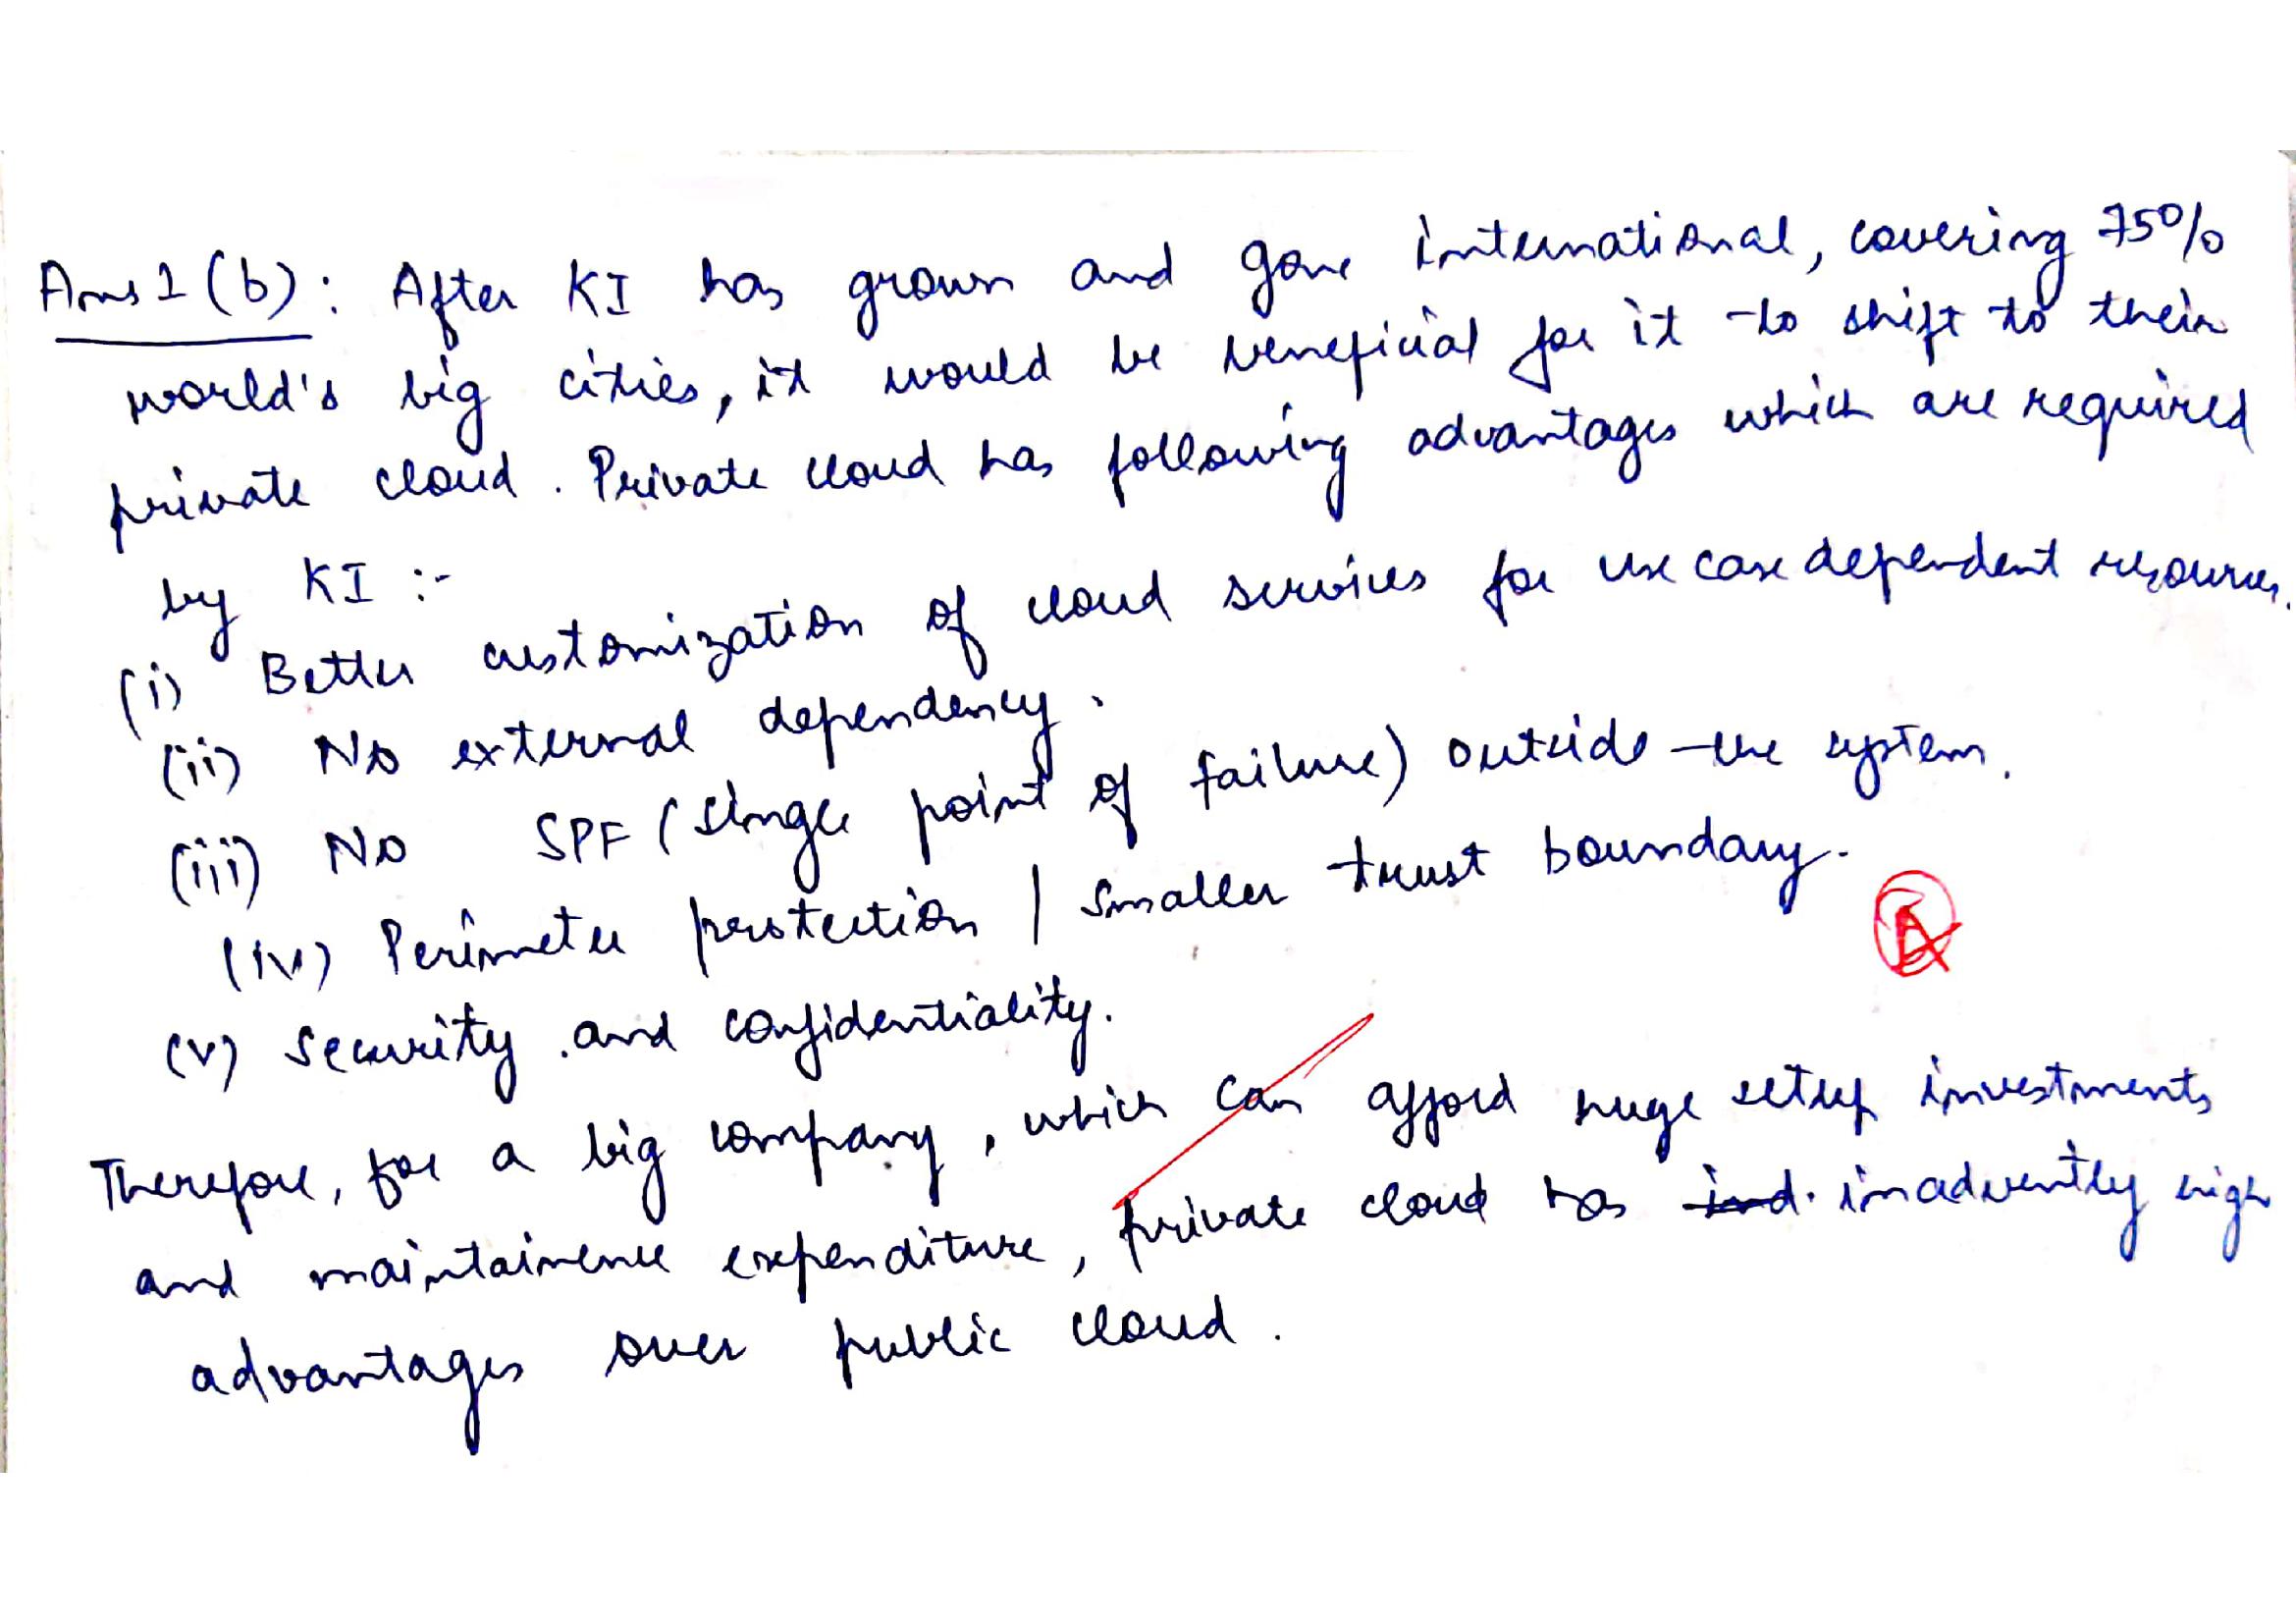 Ans 1 (b): After KI has grown and gone international, covering 75%
world's big cities, it would be beneficial for it to shift to their
private cloud. Private cloud has following advantages which are required
by KI :-
(i) Better customization of cloud services for use case dependent resources.
(ii) No external dependency.
(iii) No SPF (single point of failure) outside the system.
(iv) Perimeter protection / smaller trust boundary.
(v) Security and confidentiality.
Therefore, for a big company, which can afford huge setup investments
and maintainence expenditure, private cloud has inadvently high
advantages over public cloud.